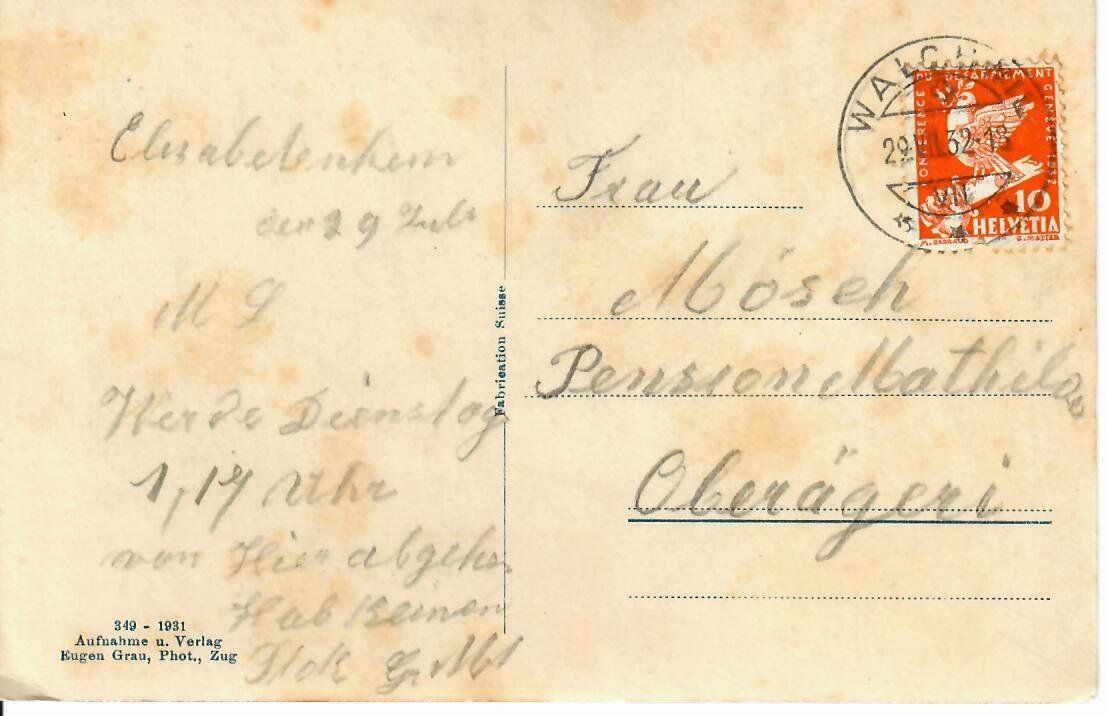 Elisabetenheim
den 29 Juli
M L
Werde Dienstag
1,17 Uhr
von Hier abgehen
Hab Keinen
349 - 1931
Aufnahme u. Verlag
Eugen Grau, Phot., Zug
Fabrication Suisse
Frau
Mösch
Pension Mathilde
Oberägeri
WALC
29.VII.32-18
CONFERENCE DU DESARMEMENT
GENEVE 1932
10
HELVETIA
M. BARRAUD